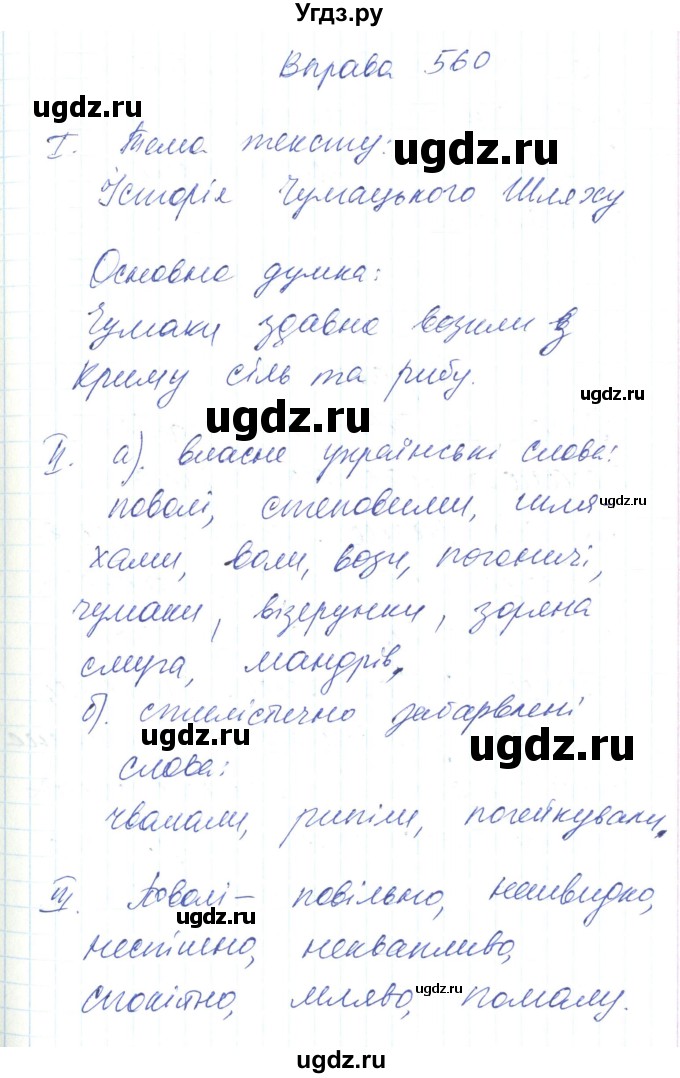 Угдз.ру
Вправа 560
ugdz.ru
I. Тема тексту:
ugdz.ru
Історія Чумацького Шляху
Основна думка:
Чумаки здавна возили з
Криму сіль та рибу.
ugdz.ru
ugdz.ru
II. а). власне українські слова:
поволі, степовими, шля
ugdz.ru
хами, воли, вози, погоничі,
чумаки, візерунки, зоряна
смуга, мандрів.
б). стилістично забарвлені
ugdz.ru
ugdz.ru
слова:
чвалали, рипіли, погейкували.
III. Поволі – повільно, нешвидко,
ugdz.ru
неспішно, неквапливо,
спокійно, мляво, помалу.
ugdz.ru
ugdz.ru